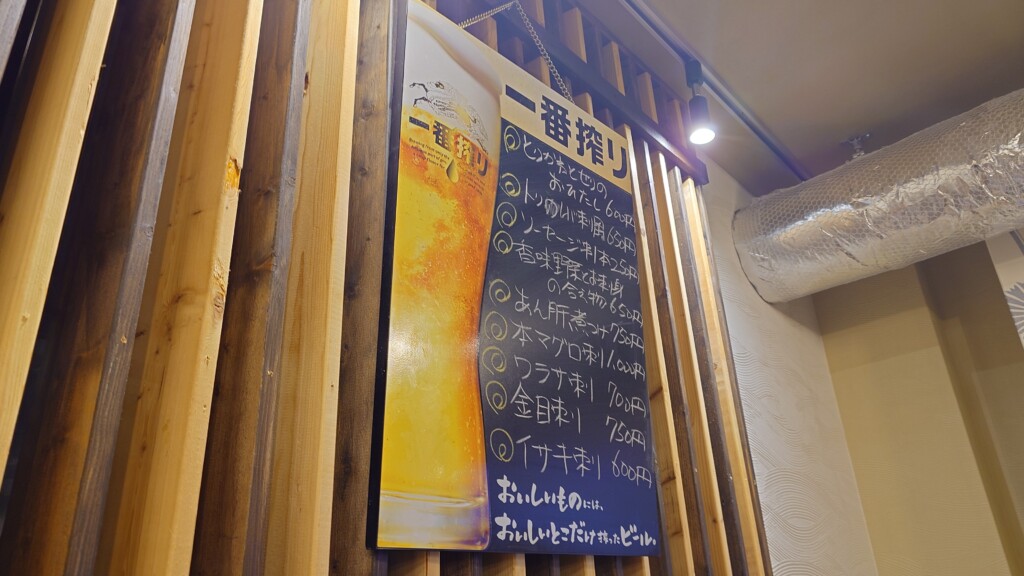 一番搾り
一番搾り
おひたし 600円
トリ 刺 650円
ソーセージ 1本 250円
香味野菜と
の合え物 650円
あん肝煮つけ 750円
本マグロ刺 1,000円
ワラサ刺 700円
金目刺 750円
イサキ刺 600円
おいしいものには、
おいしいとこだけ搾ったビール。